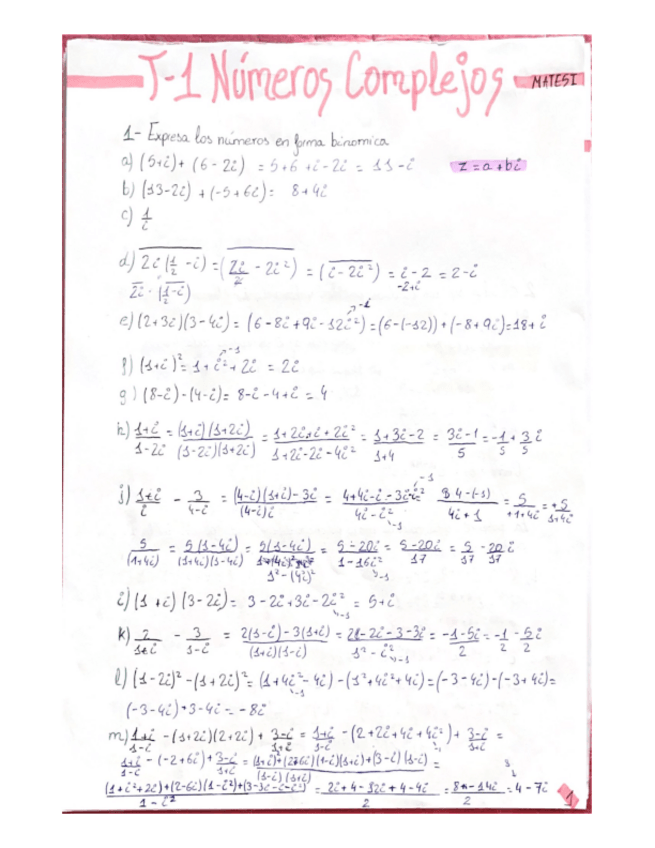 T-1 Números Complejos MATESI
1- Expresa los números en forma binomica
a) (5+i)+ (6-2i) = 5+6 +i-2i = 11-i z=a+bi
b) (13-2i) + (-5+6i)= 8+4i
c) 1/i
d) 2i(1/2 -i) = (2i/2 - 2i²) = (i-2i²) = i-2 = 2-i
2i · (1/2-i) -2+i
e) (2+3i)(3-4i) = (6-8i+9i-12i²)=(6-(-12))+(-8+9i)=18+i
f) (1+i)²= 1+i²+2i = 2i
g) (8-i)-(4-i)= 8-i-4+i = 4
h) 1+i/1-2i = (1+i)(1+2i)/(1-2i)(1+2i) = 1+2i+i+2i²/1+2i-2i-4i² = 1+3i-2/1+4 = 3i-1/5 = -1/5 + 3/5 i
j) 1+i/i - 3/4-i = (4-i)(1+i)-3i/(4-i)i = 4+4i-i-3i-i²/4i-i² 4-(-1)/4i+1 = 5/+1+4i = +5/1+4i
5/(1+4i) = 5(1-4i)/(1+4i)(1-4i) = 5(1-4i)/1²-(4i)² = 5-20i/1-16i² = 5-20i/17 = 5/17 - 20/17 i
i) (1+i)(3-2i)= 3-2i+3i-2i² = 5+i
k) 2/1+i - 3/1-i = 2(1-i)-3(1+i)/(1+i)(1-i) = 2-2i-3-3i/1²-i² = -1-5i/2 = -1/2 - 5i/2
l) (1-2i)²-(1+2i)²=(1+4i²-4i)-(1²+4i²+4i)=(-3-4i)-(-3+4i)=
(-3-4i)+3-4i = -8i
m) 1+i/1-i - (1+2i)(2+2i) + 3-i/1+i = 1+i/1-i - (2+2i+4i+4i²)+ 3-i/1+i =
1+i/1-i - (-2+6i)+ 3-i/1+i = (1+i)²+(2-6i)(1-i)(1+i)+(3-i)(1-i)/(1-i)(1+i) =
(1+i²+2i)+(2-6i)(1-i²)+(3-3i-i-i²)/1-i² = 2i+4-12i+4-4i/2 = 8-14i/2 = 4-7i
1